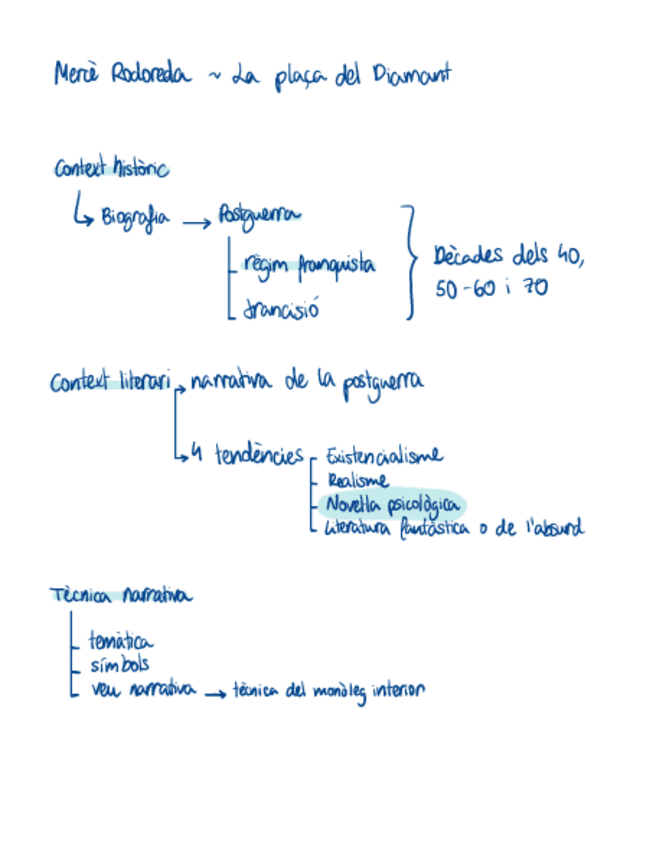 Mercè Rodoreda ~ La plaça del Diamant
Context històric
↳ Biografia → Postguerra
règim franquista
trancisió
Dècades dels 40,
50-60 i 70
Context literari → narrativa de la postguerra
↳ 4 tendències
Existencialisme
Realisme
Novel·la psicològica
Literatura fantàstica o de l'absurd
Tècnica narrativa
temàtica
símbols
veu narrativa → tècnica del monòleg interior